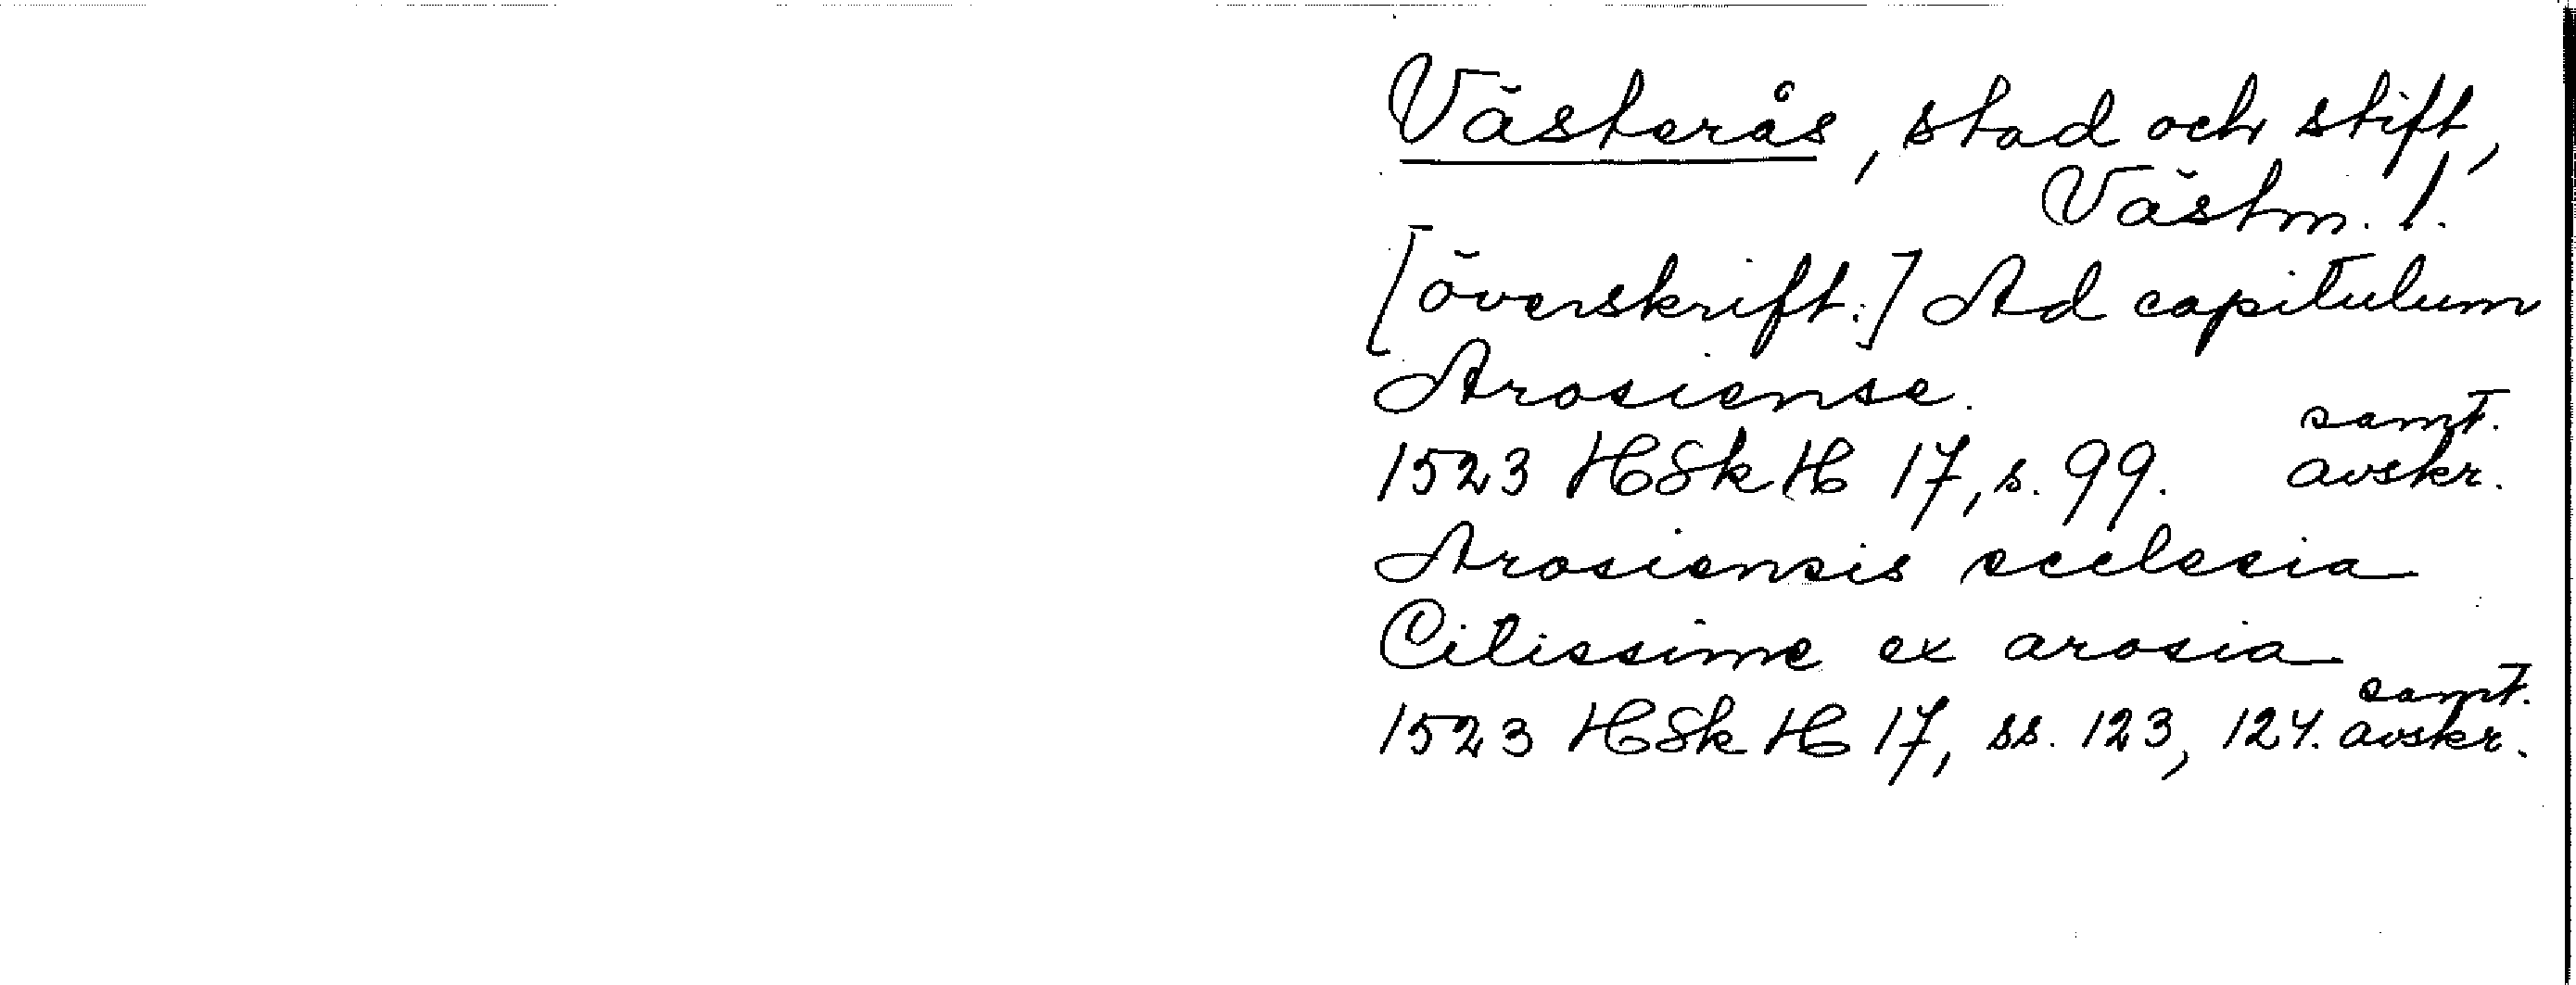 Västerås, stad och stift,
Västm. l.
[överskrift:] Ad capitulum
Arosiense.
1523 HSkH 17, s. 99. samt. avskr.
Arosiensis ecclesia
Citissime ex arosia
1523 HSkH 17, ss. 123, 124. samt. avskr.